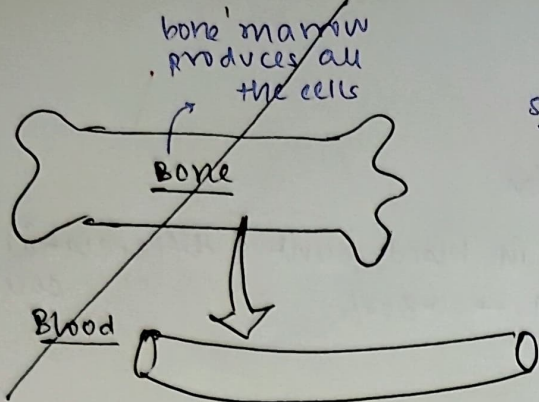 bone marrow
produces all
the cells
Bone
Blood